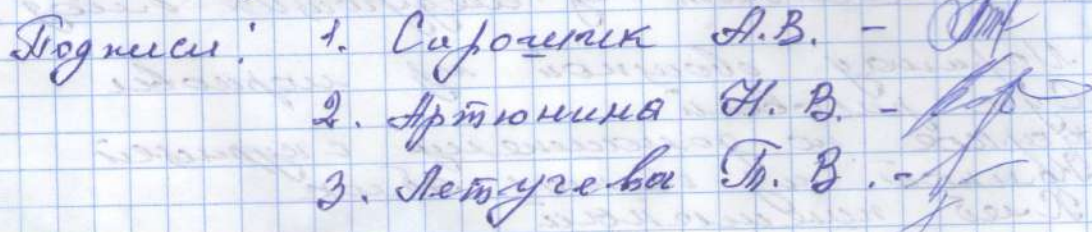 Подписи: 1. Сирошик А.В. -
2. Артюнина Н. В. -
3. Летучева Т. В. -